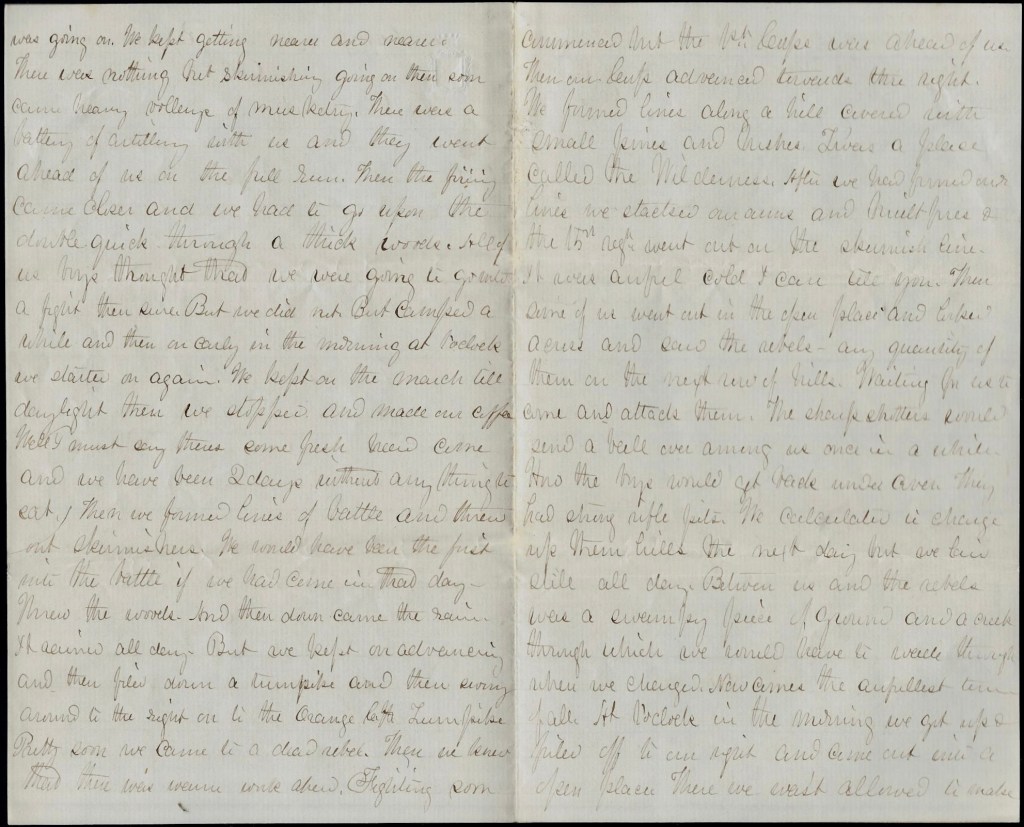 was going on. We kept getting nearer and nearer.
There was nothing but skirmishing going on then soon
came heavy volleys of musketry. There were a
battery of artillery with us and they went
ahead of us on the full run. Then the firing
came closer and we had to go upon the
double quick through a thick woods. All of
us boys thought that we were going to go into
a fight then sure. But we did not. But camped a
while and then on early in the morning at oclock
we started on again. We kept on the march till
daylight then we stopped and made our coffee
Well I must say theres some fresh bread come
and we have been 2 days without any thing to
eat. Then we formed lines of battle and threw
out skirmishers. We would have been the first
into the battle if we had came in that day-
threw the woods. And then down came the rain.
It rained all day. But we kept on advancing
and then filed down a turnpike and then swung
around to the right on to the Orange Turnpike
Pretty soon we came to a dead rebel. Then we knew
that there was warm work ahead. Fighting soon
commenced but the 1st Corps was ahead of us
Then our Corps advanced towards the right.
We formed lines along a hill covered with
small pines and bushes. Twas a place
called the Wilderness. After we had formed our
lines we stacked our arms and built fires &
the 15th regt. went out on the skirmish line.
It was awful cold I can tell you. Then
some of us went out in the open place and looked
across and saw the rebels - any quantity of
them on the next row of hills. Waiting for us to
come and attack them. The sharp shooters would
send a ball over among us once in a while.
How the boys would get back under cover They
had strong rifle pits. We calculated to charge
up them hills the next day but we lain
still all day. Between us and the rebels
was a swampy piece of ground and a creek
through which we would have to wade through
when we charged. Now comes the awfullest time
of all. At oclock in the morning we got up &
filed off to our right and came out into a
open place There we wast allowed to make